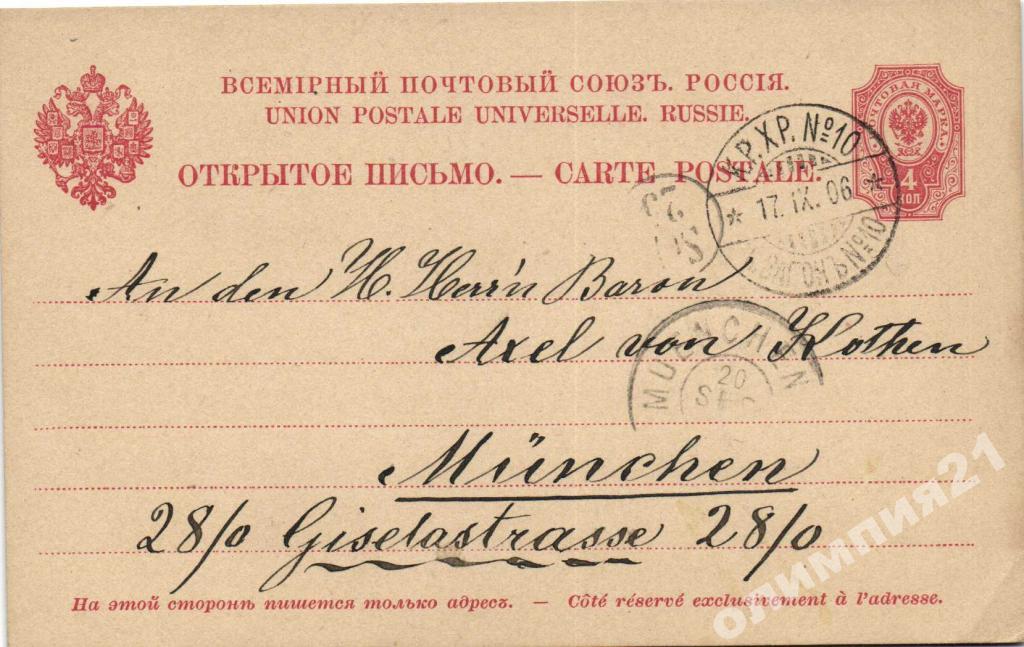 ВСЕМІРНЫЙ ПОЧТОВЫЙ СОЮЗЪ. РОССІЯ.
UNION POSTALE UNIVERSELLE. RUSSIE.
ОТКРЫТОЕ ПИСЬМО. — CARTE POSTALE.
ПОЧТОВАЯ МАРКА
4
КОП
К.Р.Х.Р. №10
* 17. IX. 06 *
An den H. Herr'n Baron
Axel von Kothen
MUENCHEN
20
München
28/0 Giselastrasse 28/0
На этой сторонѣ пишется только адресъ. — Côté réservé exclusivement à l'adresse.
олимпия21